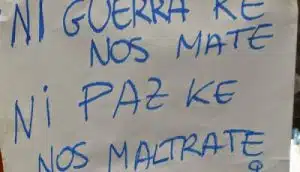 NI GUERRA KE
NOS MATE
NI PAZ KE
NOS MALTRATE